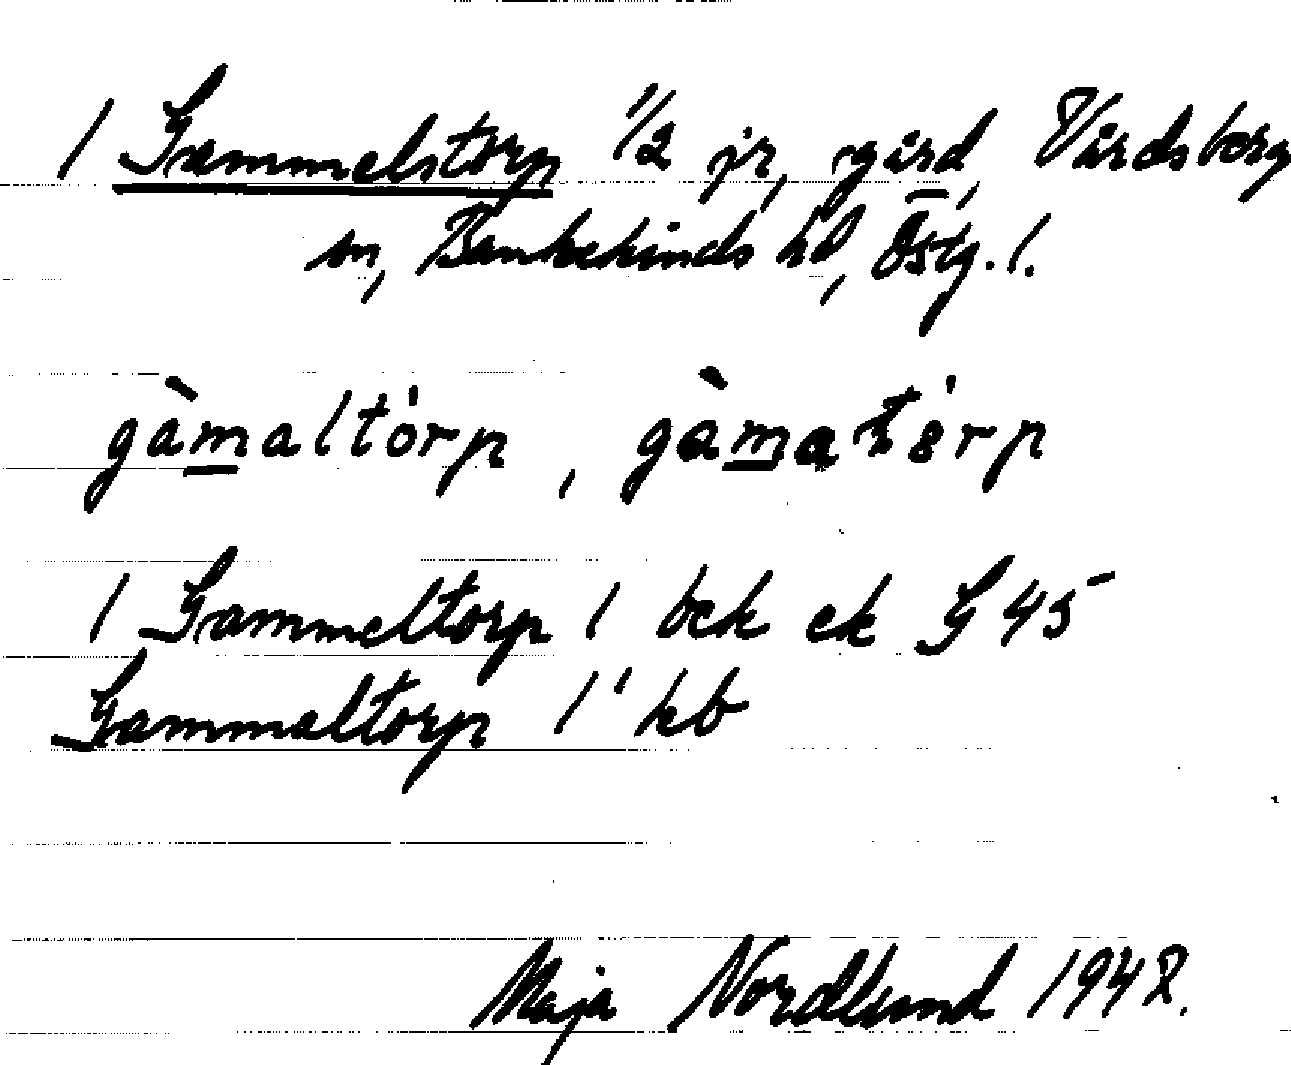 1 Gammelstorp 1/2 jr, gård, Vårdsberg
sn, Bankekinds hd, Östg. l.
gàmaltórp, gàmatórp
1 Gammeltorp 1 bek ek G 45
Gammaltorp 1' kb
Maja Nordlund 1948.